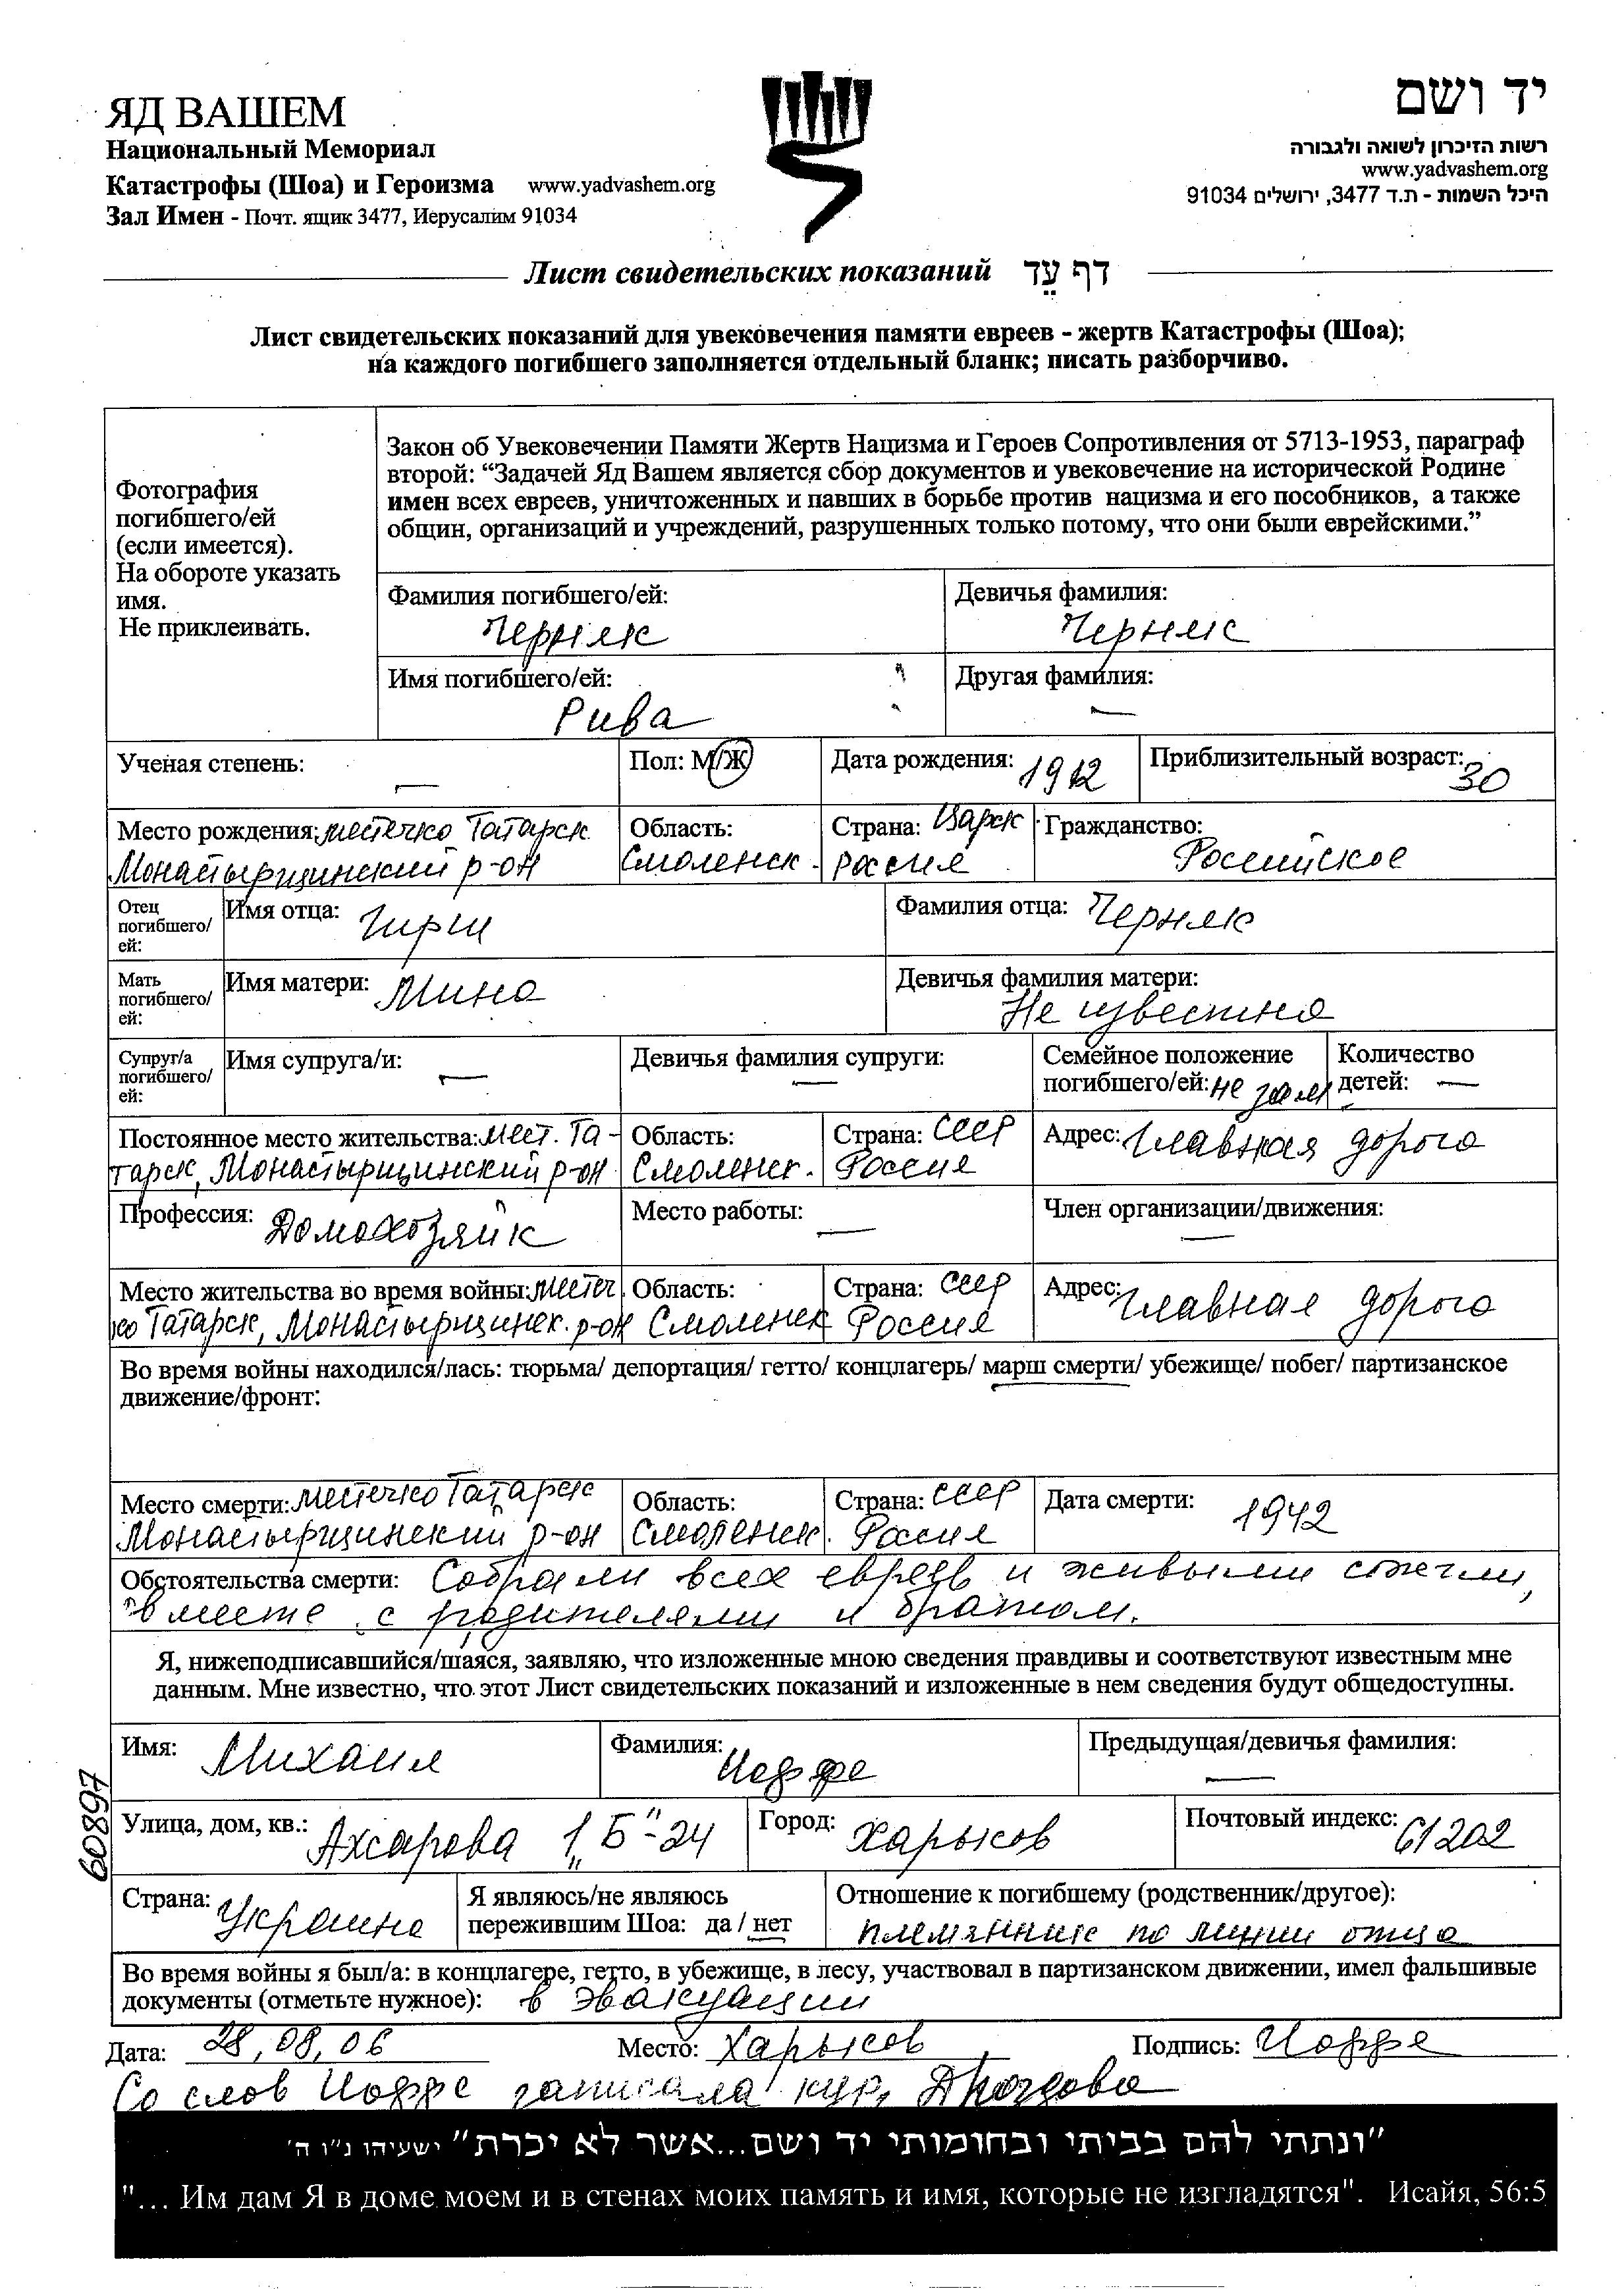 ЯД ВАШЕМ
Национальный Мемориал
Катастрофы (Шоа) и Героизма www.yadvashem.org
Зал Имен - Почт. ящик 3477, Иерусалим 91034
יד ושם
רשות הזיכרון לשואה ולגבורה
www.yadvashem.org
היכל השמות - ת.ד 3477, ירושלים 91034
Лист свидетельских показаний דף עֵד
Лист свидетельских показаний для увековечения памяти евреев - жертв Катастрофы (Шоа);
на каждого погибшего заполняется отдельный бланк; писать разборчиво.
Фотография
погибшего/ей
(если имеется).
На обороте указать
имя.
Не приклеивать.
Закон об Увековечении Памяти Жертв Нацизма и Героев Сопротивления от 5713-1953, параграф
второй: “Задачей Яд Вашем является сбор документов и увековечение на исторической Родине
имен всех евреев, уничтоженных и павших в борьбе против нацизма и его пособников, а также
общин, организаций и учреждений, разрушенных только потому, что они были еврейскими.”
Фамилия погибшего/ей:
Черняк
Девичья фамилия:
Черняк
Имя погибшего/ей:
Рива
Другая фамилия:
—
Ученая степень: —
Пол: М/Ж
Дата рождения: 1912
Приблизительный возраст: 30
Место рождения: местечко Татарск
Монастырщинский р-он
Область:
Смоленск.
Страна: Царск
Россия
Гражданство:
Российское
Отец
погибшего/
ей:
Имя отца: Гирш
Фамилия отца: Черняк
Мать
погибшего/
ей:
Имя матери: Мина
Девичья фамилия матери:
Не известна
Супруг/а
погибшего/
ей:
Имя супруга/и: —
Девичья фамилия супруги:
—
Семейное положение
погибшего/ей: не зам
Количество
детей: —
Постоянное место жительства: мест. Та-
тарск, Монастырщинский р-он
Область:
Смоленск.
Страна: СССР
Россия
Адрес: Главная дорога
Профессия: Домохозяйк
Место работы: —
Член организации/движения:
—
Место жительства во время войны: местеч
ко Татарск, Монастырщинск. р-он
Область:
Смоленск
Страна: СССР
Россия
Адрес: Главная дорога
Во время войны находился/лась: тюрьма/ депортация/ гетто/ концлагерь/ марш смерти/ убежище/ побег/ партизанское
движение/фронт:
Место смерти: местечко Татарск
Монастырщинский р-он
Область:
Смоленск.
Страна: СССР
Россия
Дата смерти: 1942
Обстоятельства смерти: Собрали всех евреев и живыми сожгли,
вместе с родителями и братом.
Я, нижеподписавшийся/шаяся, заявляю, что изложенные мною сведения правдивы и соответствуют известным мне
данным. Мне известно, что этот Лист свидетельских показаний и изложенные в нем сведения будут общедоступны.
Имя: Михаил
Фамилия: Иоффе
Предыдущая/девичья фамилия:
—
60897
Улица, дом, кв.: Ахсарова 1 „Б“-24
Город: Харьков
Почтовый индекс: 61202
Страна: Украина
Я являюсь/не являюсь
пережившим Шоа: да / нет
Отношение к погибшему (родственник/другое):
племянник по линии отца
Во время войны я был/а: в концлагере, гетто, в убежище, в лесу, участвовал в партизанском движении, имел фальшивые
документы (отметьте нужное): в эвакуации
Дата: 28,08,06 Место: Харьков Подпись: Иоффе
Со слов Иоффе записала кур. Дроздова
"ונתתי להם בביתי ובחומותי יד ושם...אשר לא יכרת" ישעיהו נ"ו ה'
"... Им дам Я в доме моем и в стенах моих память и имя, которые не изгладятся". Исайя, 56:5